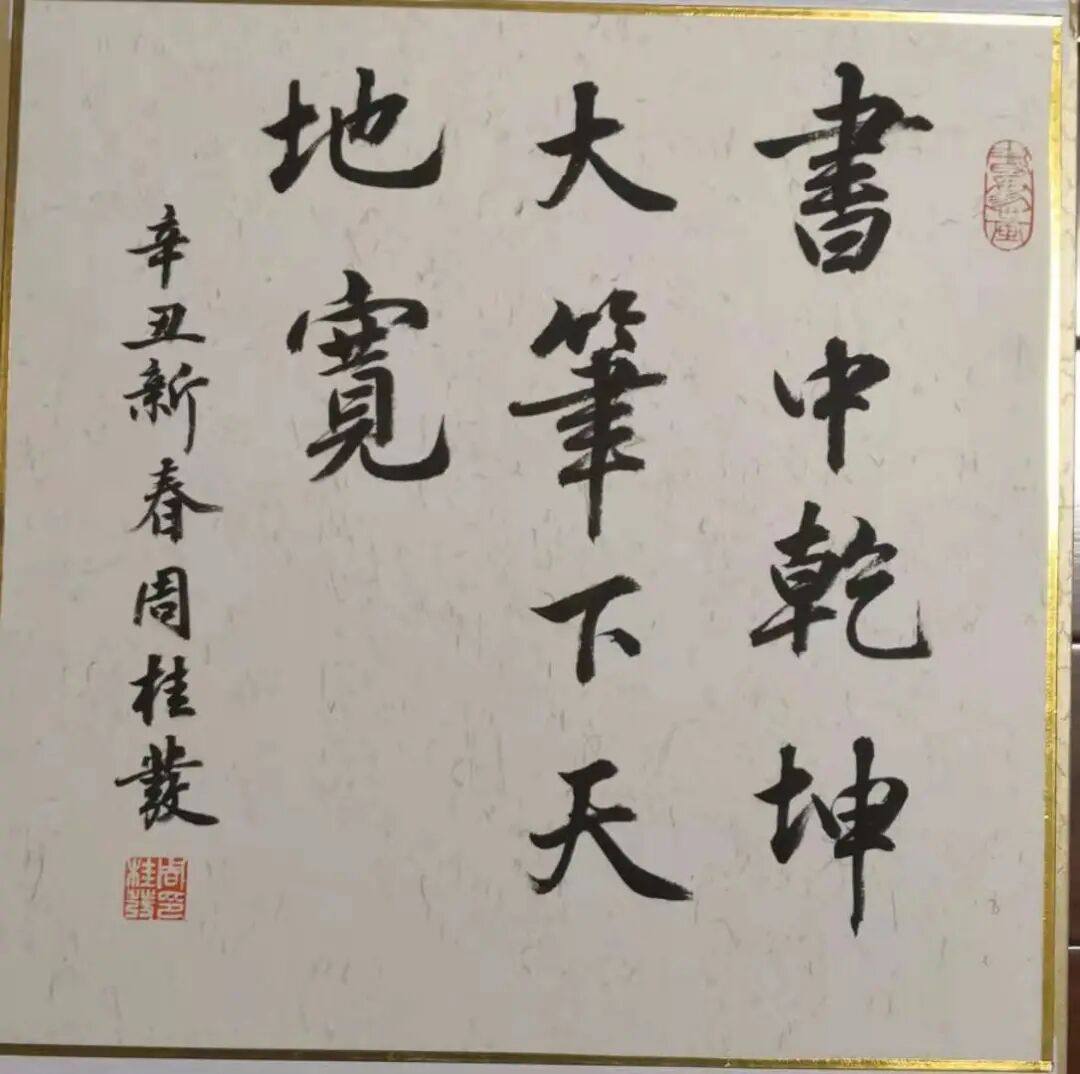 書中乾坤
大筆下天
地寬
辛丑新春周桂發
周印
桂發